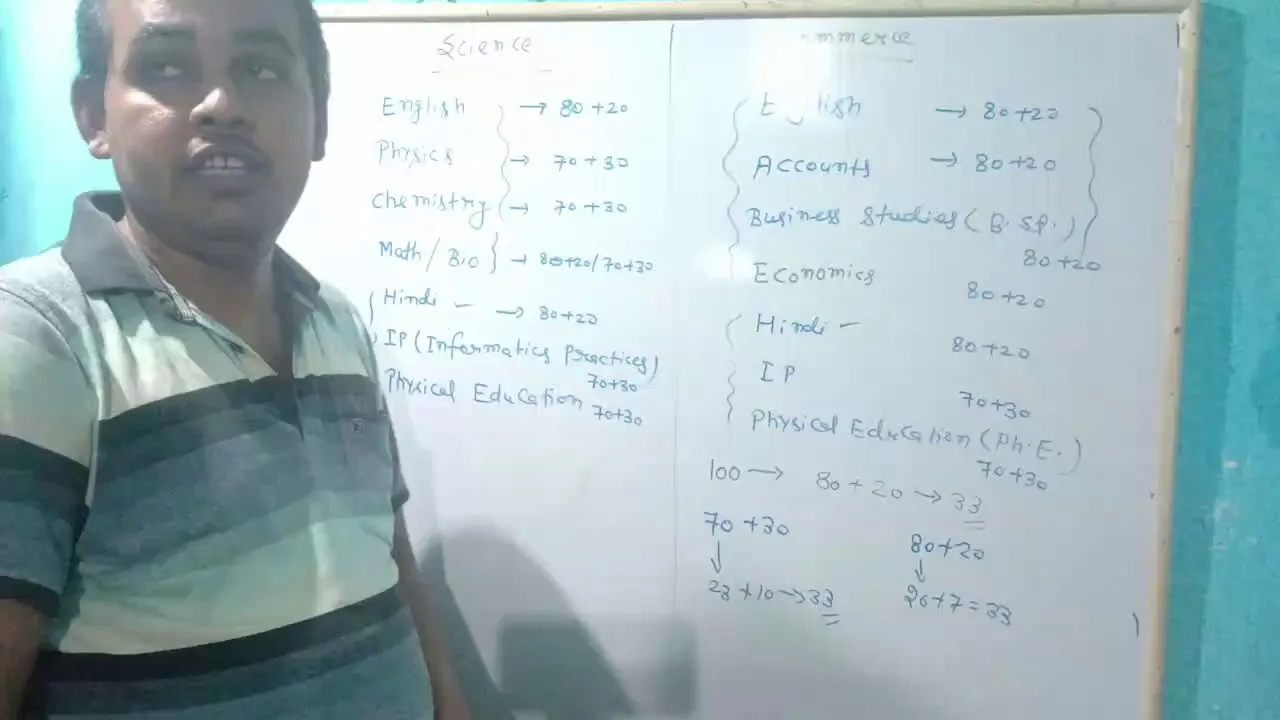 Science
English → 80+20
Physics → 70+30
Chemistry → 70+30
Math/Bio → 80+20/70+30
Hindi → 80+20
IP (Informatics Practices)
70+30
Physical Education 70+30
mmerce
E lish → 80+20
Accounts → 80+20
Business Studies (B. St.)
80+20
Economics 80+20
Hindi – 80+20
IP 70+30
Physical Education (Ph.E.)
70+30
100 → 80+20 → 33
70+30
↓
23+10→33
80+20
↓
26+7=33